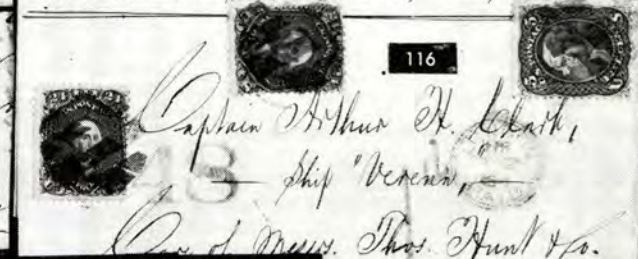 116
Captain Arthur H. Clark,
Ship "Verena,"
48
Care of Messrs. Thos. Hunt & Co.